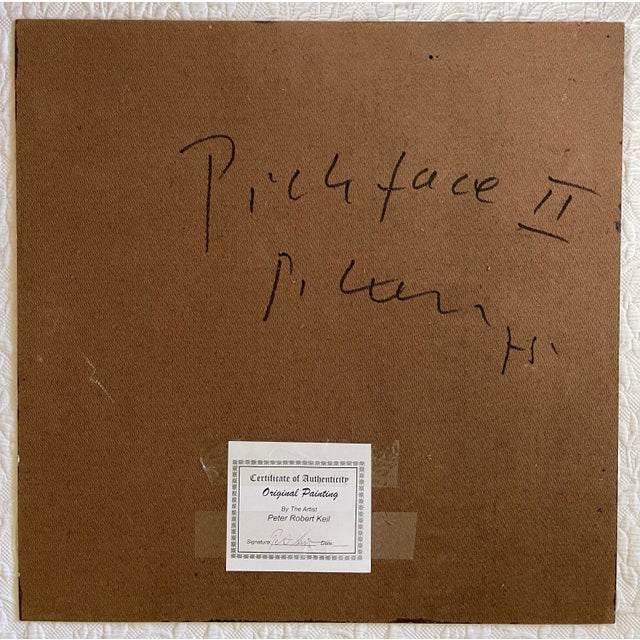 Pichface II
P. Keil
75.
Certificate of Authenticity
Original Painting
By The Artist
Peter Robert Keil
Signature Date